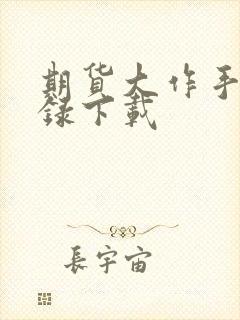 期货大作手
録下載
長宇宙